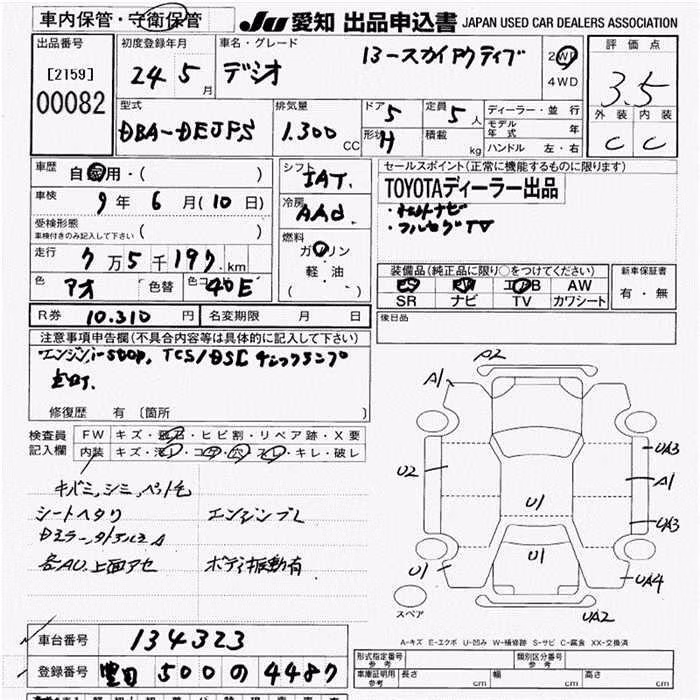 車内保管・守衛保管
JU 愛知 出品申込書 JAPAN USED CAR DEALERS ASSOCIATION
出品番号
[2159]
00082
初度登録年月
24 5月
車名・グレード
デミオ
13-スカイアクティブ
2WD
4WD
評価点
3.5
外装 内装
C C
型式
DBA-DEJFS
排気量
1.300 CC
ドア 5
形状 H
定員 5人
積載 kg
ディーラー・並行
モデル年式 年
ハンドル 左・右
車歴
自家用・( )
車検
9年6月(10日)
受検形態
車検付きのみ記入して下さい ( )
走行
7万5千197km
色
アオ
色替
色コ 40E
シフト
IAT.
冷房
AAC
燃料
ガソリン
軽・油
( )
セールスポイント(正常に機能するものに限ります)
TOYOTAディーラー出品
・ナビ
・フルセグTV
装備品(純正品に限り○をつけてください)
PS PW エアB AW
SR ナビ TV カワシート
新車保証書
有・無
R券 10.310円
名変期限 月 日
後日品
注意事項申告欄(不具合内容等は具体的に記入して下さい)
エンジン、i-stop、TCS/DSC チェックランプ
点灯.
修復歴 有 〔箇所 〕
検査員
記入欄
FW キズ・飛石・ヒビ割・リペア跡・X要
内装 キズ・汚レ・コゲ・穴・スレ・キレ・破レ
キバミ、シミ、ペット毛
シートヘタリ
エンジンブレ
各AU.上面アセ
ボディ振動有
A2
A1
UA3
U2
A1
U1
UA3
U1
U1
UA4
スペア
UA2
A-キズ E-エクボ U-凹み W-補修跡 S-サビ C-腐食 XX-交換済
車台番号
134323
登録番号
豊田 500 の 4487
型式指定番号
参考
類別区分番号
参考
車庫証明用
参考
長さ cm
幅 cm
高さ cm